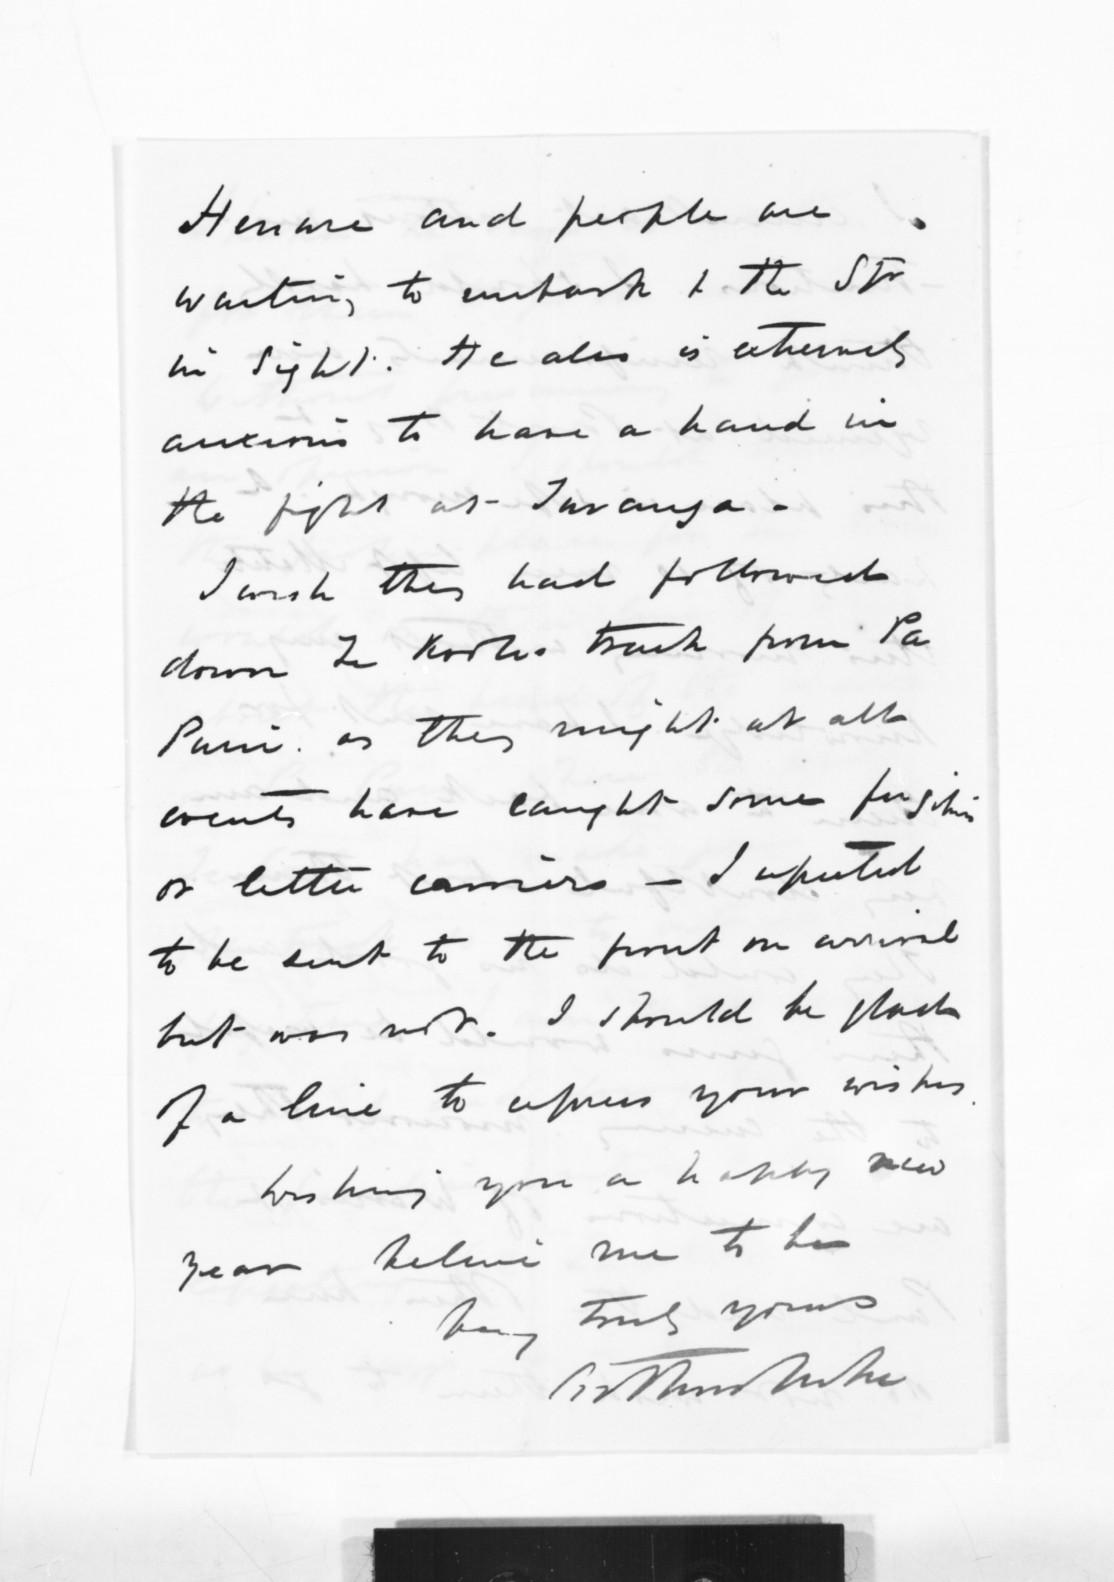 Henare and people are
waiting to embark & the Str
in sight. He also is extremely
anxious to have a hand in
the fight at Tauranga -
I wish they had followed
down Te Kooti's track from Pa
Puni. as they might at all
events have caught some fugitives
or letter carriers - I expected
to be sent to the front on arrival
but was not. I should be glad
of a line to express your wishes.
Wishing you a happy new
year believe me to be
Very truly yours